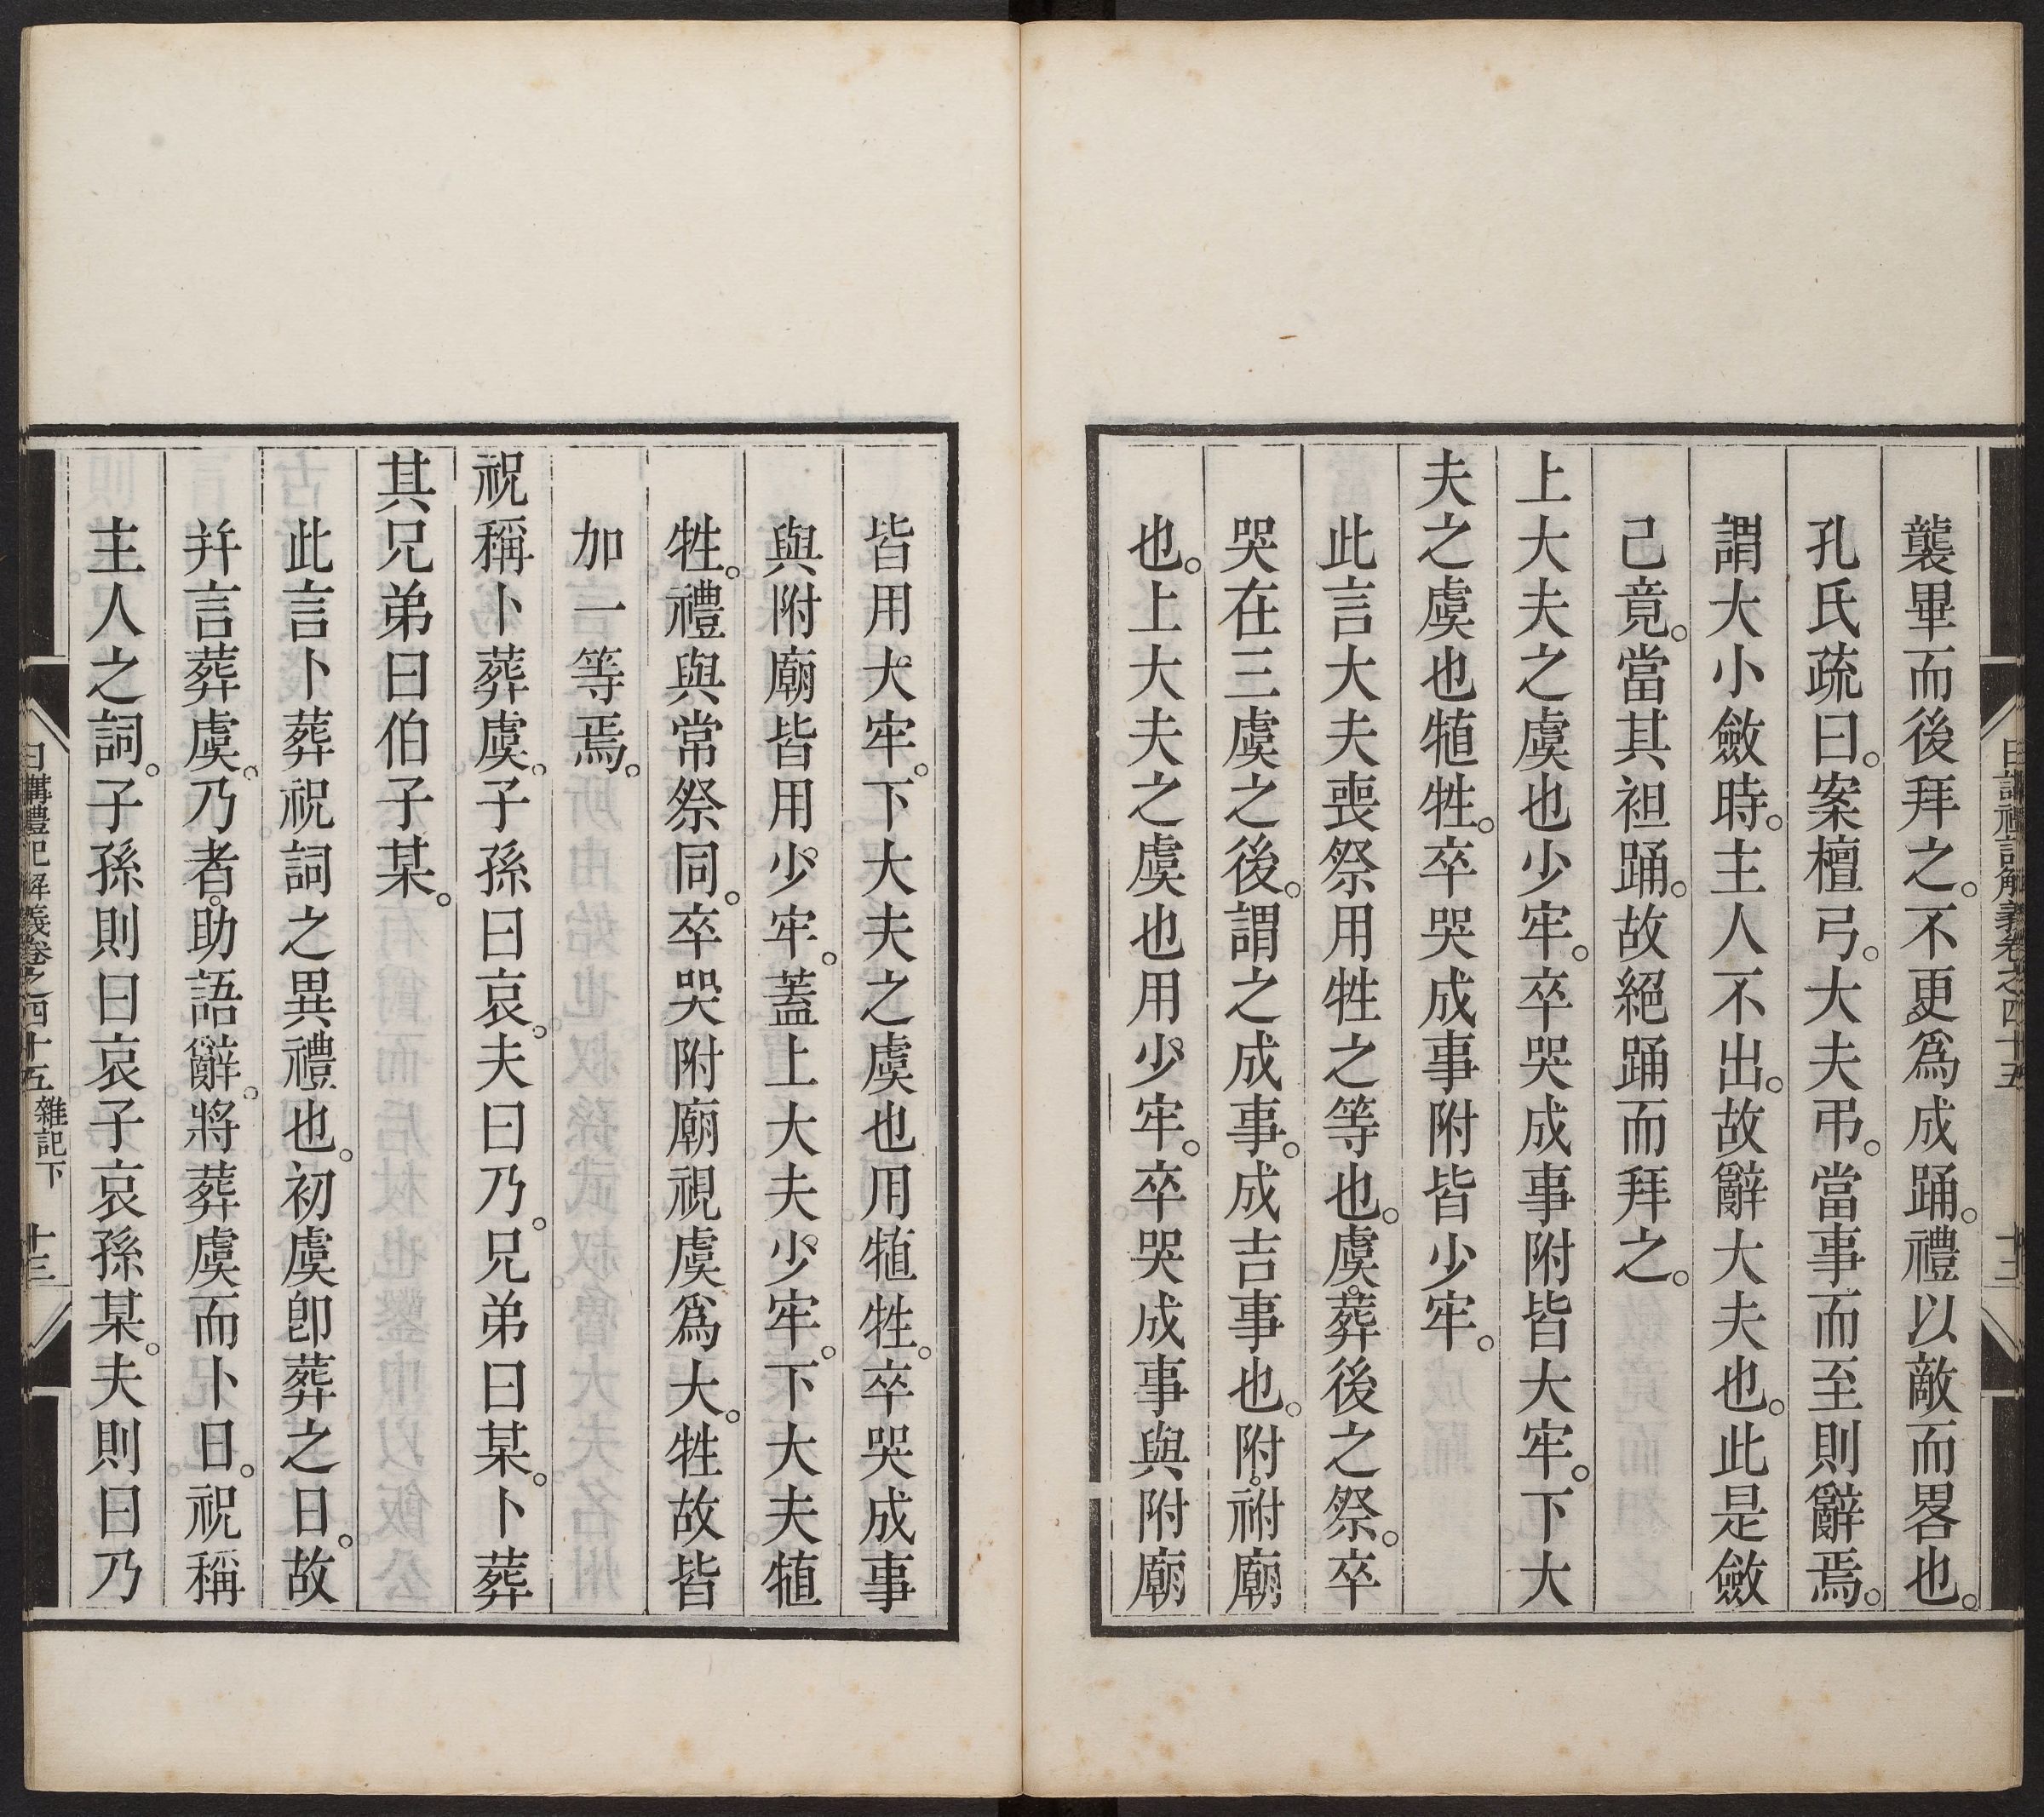 襲畢而後拜之。不更爲成踊。禮以敵而畧也。
孔氏疏曰。案檀弓。大夫弔。當事而至則辭焉。
謂大小斂時。主人不出。故辭大夫也。此是斂
已竟。當其袒踊。故絕踊而拜之。
上大夫之虞也少牢。卒哭成事附皆大牢。下大
夫之虞也犆牲。卒哭成事附皆少牢。
此言大夫喪祭用牲之等也。虞。葬後之祭。卒
哭在三虞之後。謂之成事。成吉事也。附。祔廟
也。上大夫之虞也用少牢。卒哭成事與附廟
皆用大牢。下大夫之虞也用犆牲。卒哭成事
與附廟皆用少牢。蓋上大夫少牢。下大夫犆
牲。禮與常祭同。卒哭附廟視虞爲大。牲故皆
加一等焉。
祝稱卜葬虞。子孫曰哀。夫曰乃。兄弟曰某。卜葬
其兄弟曰伯子某。
此言卜葬祝詞之異禮也。初虞卽葬之日。故
幷言葬虞。乃者。助語辭。將葬虞而卜日。祝稱
主人之詞。子孫則曰哀子哀孫某。夫則曰乃
日講禮記解義卷之四十五 雜記下 十三